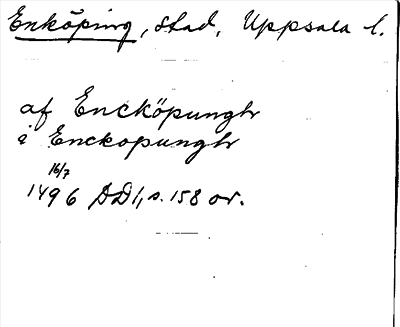 Enköping, stad, Uppsala l.
af Encköpungh
i Enckopungh
16/7
1496 DD1, s. 158 or.